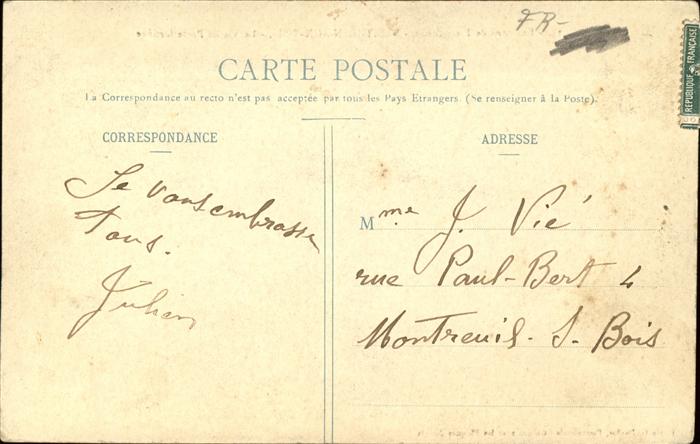 FR-
REPUBLIQUE FRANÇAISE
CARTE POSTALE
La Correspondance au recto n'est pas acceptée par tous les Pays Etrangers. (Se renseigner à la Poste).
CORRESPONDANCE
Je vous embrasse
Tous.
Julien
ADRESSE
Mme J. Vié
rue Paul-Bert 4
Montreuil. S. Bois